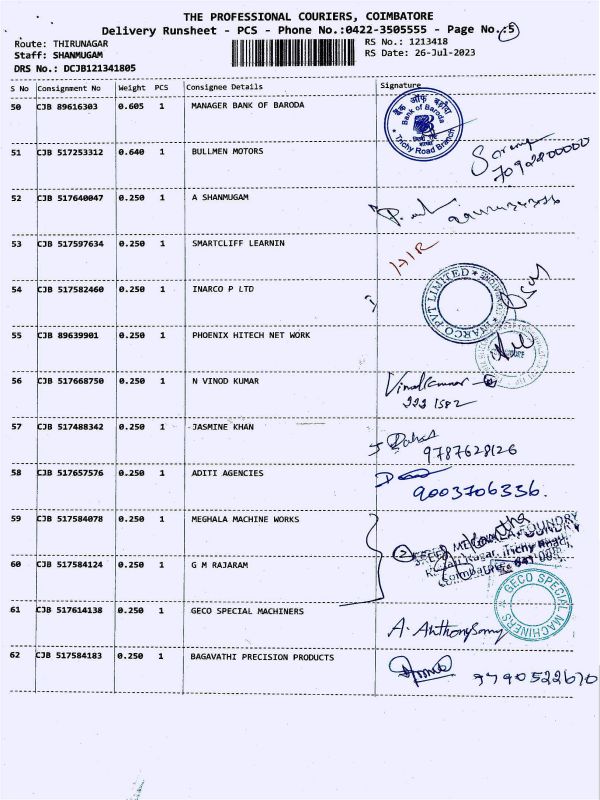 THE PROFESSIONAL COURIERS, COIMBATORE
Delivery Runsheet - PCS - Phone No.:0422-3505555 - Page No.:5
Route: THIRUNAGAR
RS No.: 1213418
Staff: SHANMUGAM
RS Date: 26-Jul-2023
DRS No.: DCJB121341805
S No Consignment No Weight PCS Consignee Details Signature
50 CJB 89616303 0.605 1 MANAGER BANK OF BARODA
बैंक ऑफ़ बड़ौदा
Bank of Baroda
Trichy Road Branch
51 CJB 517253312 0.640 1 BULLMEN MOTORS
7092800000
52 CJB 517640047 0.250 1 A SHANMUGAM
53 CJB 517597634 0.250 1 SMARTCLIFF LEARNIN
54 CJB 517582460 0.250 1 INARCO P LTD
INARCO PVT LIMITED
55 CJB 89639901 0.250 1 PHOENIX HITECH NET WORK
56 CJB 517668750 0.250 1 N VINOD KUMAR
Vinod Kumar
222 1582
57 CJB 517488342 0.250 1 JASMINE KHAN
9787628126
58 CJB 517657576 0.250 1 ADITI AGENCIES
9003706336.
59 CJB 517584078 0.250 1 MEGHALA MACHINE WORKS
2
60 CJB 517584124 0.250 1 G M RAJARAM
61 CJB 517614138 0.250 1 GECO SPECIAL MACHINERS
GECO SPECIAL MACHINERS
A. Anthonysamy
62 CJB 517584183 0.250 1 BAGAVATHI PRECISION PRODUCTS
9790522670